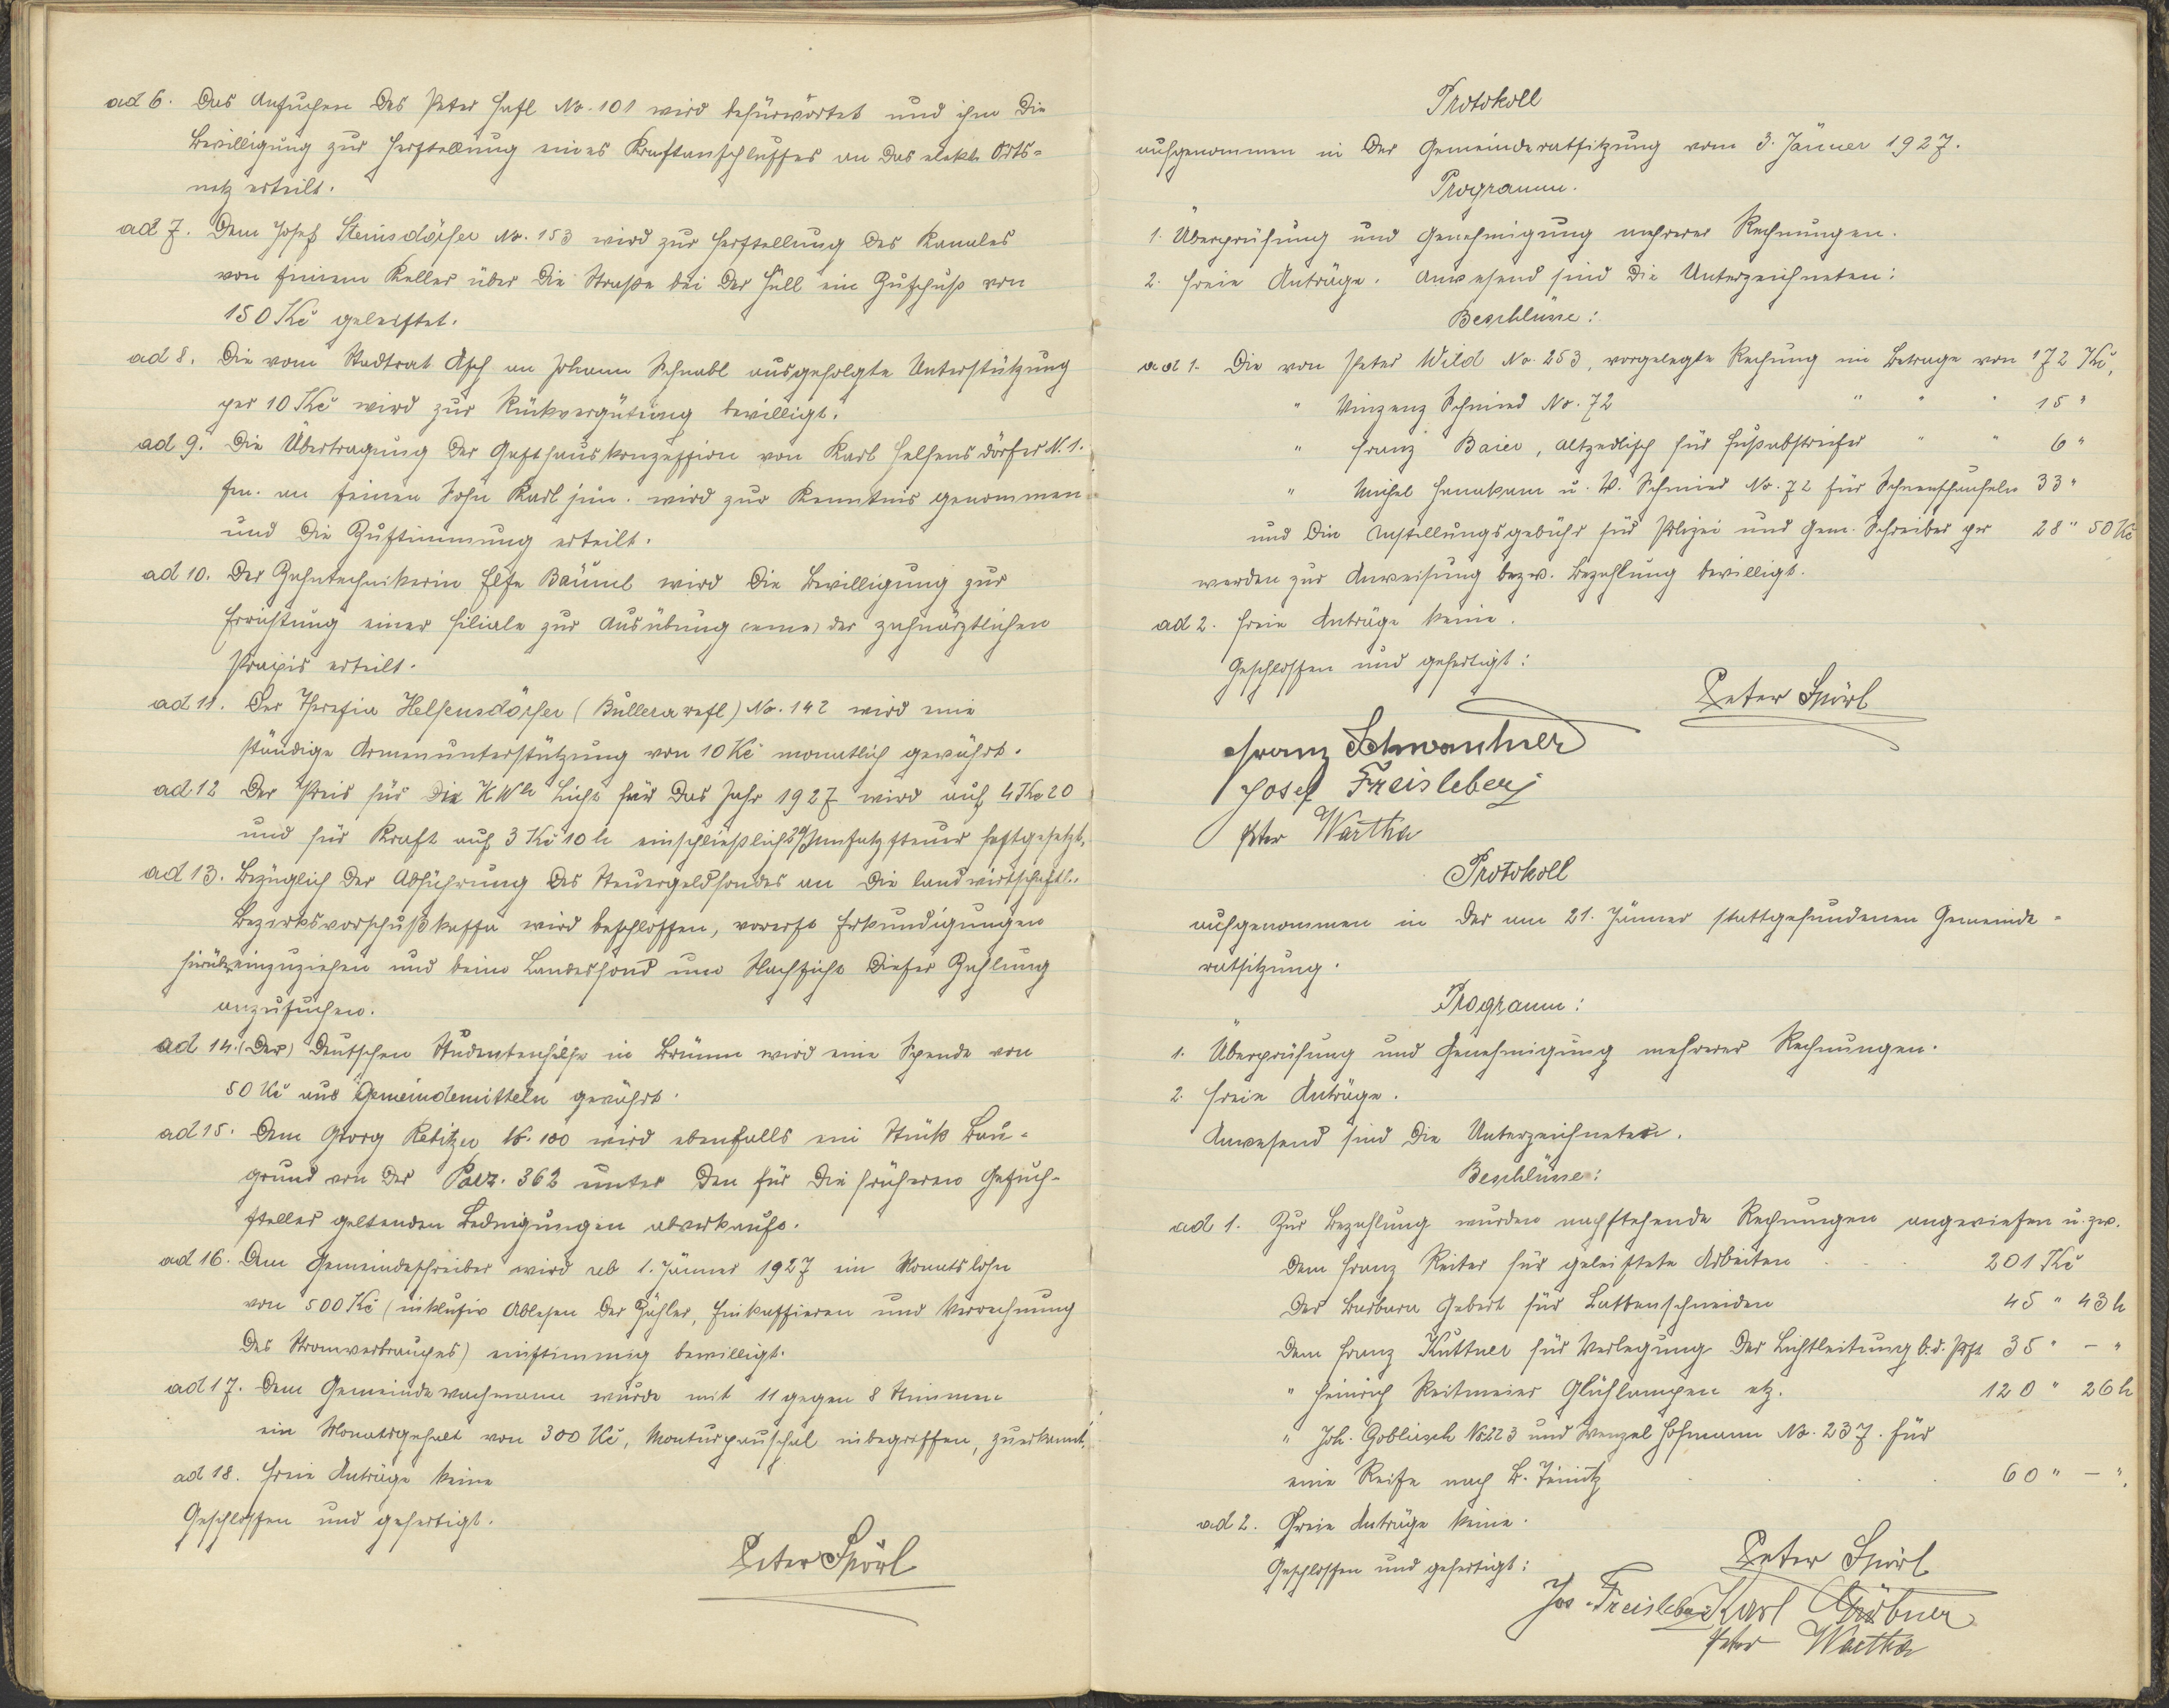 ad 6. Das Ansuchen des Peter Hasl No. 101 wird befürwortet und ihm die
Bewilligung zur Herstellung eines Kraftanschlusses an das elekt. Orts-
netz erteilt.
ad 7. Dem Josef Steinsdörfer No. 153 wird zur Herstellung des Kanales
von seinem Keller über die Straße bei der Hüll ein Zuschuß von
150 Kč geleistet.
ad 8. Die vom Stadtrat Asch an Johann Schnabl ausgefolgte Unterstützung
per 10 Kč wird zur Rückvergütung bewilligt.
ad 9. Die Übertragung der Gasthauskonzession von Karl Helfensdörfer N. 1.
sen. an seinen Sohn Karl jun. wird zur Kenntnis genommen
und die Zustimmung erteilt.
ad 10. Der Zahntechnikerin Else Bäuml wird die Bewilligung zur
Errichtung einer Filiale zur Ausübung (eine) der zahnärztlichen
Praxis erteilt.
ad 11. Der Theresia Helfensdörfer No. 142 wird eine
ständige Armenunterstützung von 10 Kč monatlich gewährt.
ad 12 Der Preis für die KWh Licht für das Jahr 1927 wird auf 4 Kč 20
und für Kraft auf 3 Kč 10 h einschließlich 2% Umsatzsteuer festgesetzt.
ad 13. Bezüglich der Abführung des Steuergeldfondes an die landwirtschaftl.
Bezirksvorschußkassa wird beschlossen, vorerst Erkundigungen
hierüber einzuziehen und beim Landesfond um Nachsicht dieser Zahlung
anzusuchen.
ad 14. (Der) Deutschen Studentenhilfe in Brünn wird eine Spende von
50 Kč aus Gemeindemitteln gewährt.
ad 15. Dem Georg Rebitzer N. 100 wird ebenfalls ein Stück Bau-
grund von der Parz. 362 unter den für die früheren Gesuch-
steller geltenden Bedingungen abverkauft.
ad 16. Dem Gemeindeschreiber wird ab 1. Jänner 1927 ein Monatslohn
von 500 Kč (inklusiv Ablesen der Zähler, Einkassieren und Verrechnung
des Stromverbrauches) einstimmig bewilligt.
ad 17. Dem Gemeindewachmann wurde mit 11 gegen 8 Stimmen
ein Monatsgehalt von 300 Kč, Monturpauschal inbegriffen, zuerkannt.
ad 18. Freie Anträge keine
Geschlossen und gefertigt.
Peter Spörl
Protokoll
aufgenommen in der Gemeinderatsitzung vom 3. Jänner 1927.
Programm.
1. Überprüfung und Genehmigung mehrerer Rechnungen.
2. Freie Anträge. Anwesend sind die Unterzeichneten:
Beschlüsse:
ad 1. Die von Peter Wild No. 253, vorgelegte Rechnung im Betrage von 172 Kč,
" Vinzenz Schmied No. 72 " " " 15 "
" Franz Baier, Altzedlisch für Fußabstreifer " " 6 "
" Michel Hanakam u. V. Schmied No. 72 für Schneeschaufeln 33 "
und die Anstellungsgebühr für Polizei und Gem. Schreiber per 28 " 50 Kč
werden zur Anweisung bezw. Bezahlung bewilligt.
ad 2. Freie Anträge keine.
Geschlossen und gefertigt:
Peter Spörl
Franz Schwanhner
Josef Freisleben
Peter Wartha
Protokoll
aufgenommen in der am 21. Jänner stattgefundenen Gemeinde-
ratsitzung.
Programm:
1. Überprüfung und Genehmigung mehrerer Rechnungen.
2. Freie Anträge.
Anwesend sind die Unterzeichneten.
Beschlüsse:
ad 1. Zur Bezahlung wurden nachstehende Rechnungen angewiesen u. zw.
dem Franz Reiter für geleistete Arbeiten 201 Kč
der Barbara Gebert für Lattenschneiden 45 " 43 h
dem Franz Kuttner für Verlegung der Lichtleitung b. d. Pst 35 " - "
" Heinrich Reitmeier Glühlampen etz. 120 " 26 h
" Joh. Goblirsch No 223 und Wenzel Hofmann No. 237. für
eine Reise nach B. Teinitz 60 " - ".
ad 2. Freie Anträge keine.
Geschlossen und gefertigt:
Peter Spörl
Jos. Freisleben Karl Gröbner
Peter Wartha